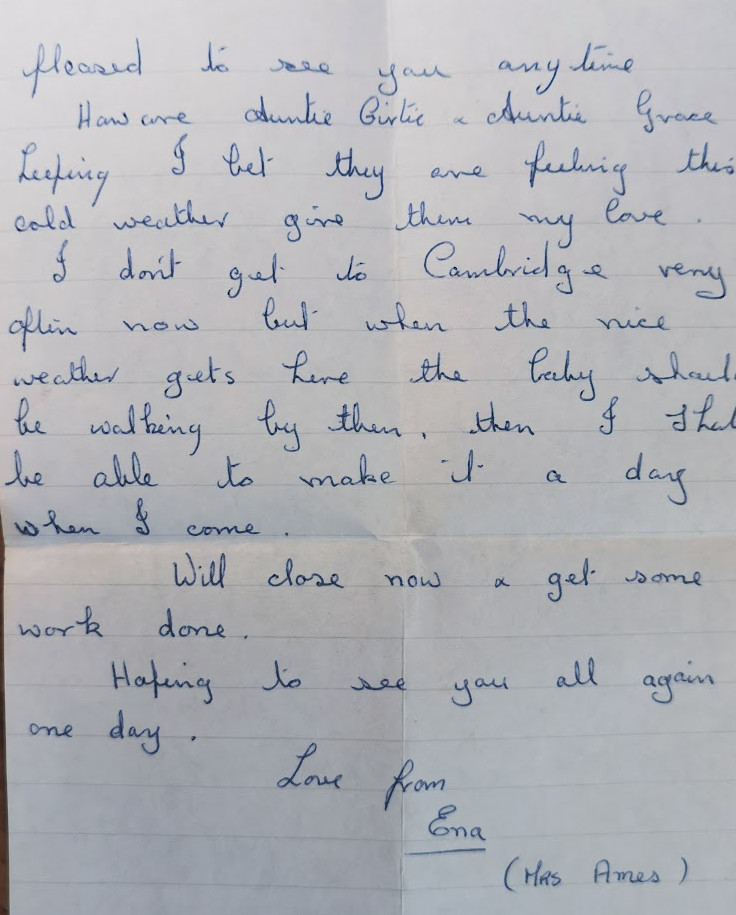 pleased to see you any time
How are Auntie Girlie & Auntie Grace
keeping I bet they are feeling this
cold weather give them my love.
I don't get to Cambridge very
often now but when the nice
weather gets here the baby should
be walking by then, then I shall
be able to make it a day
when I come.
Will close now & get some
work done.
Hoping to see you all again
one day.
Love from
Ena
(Mrs Ames)